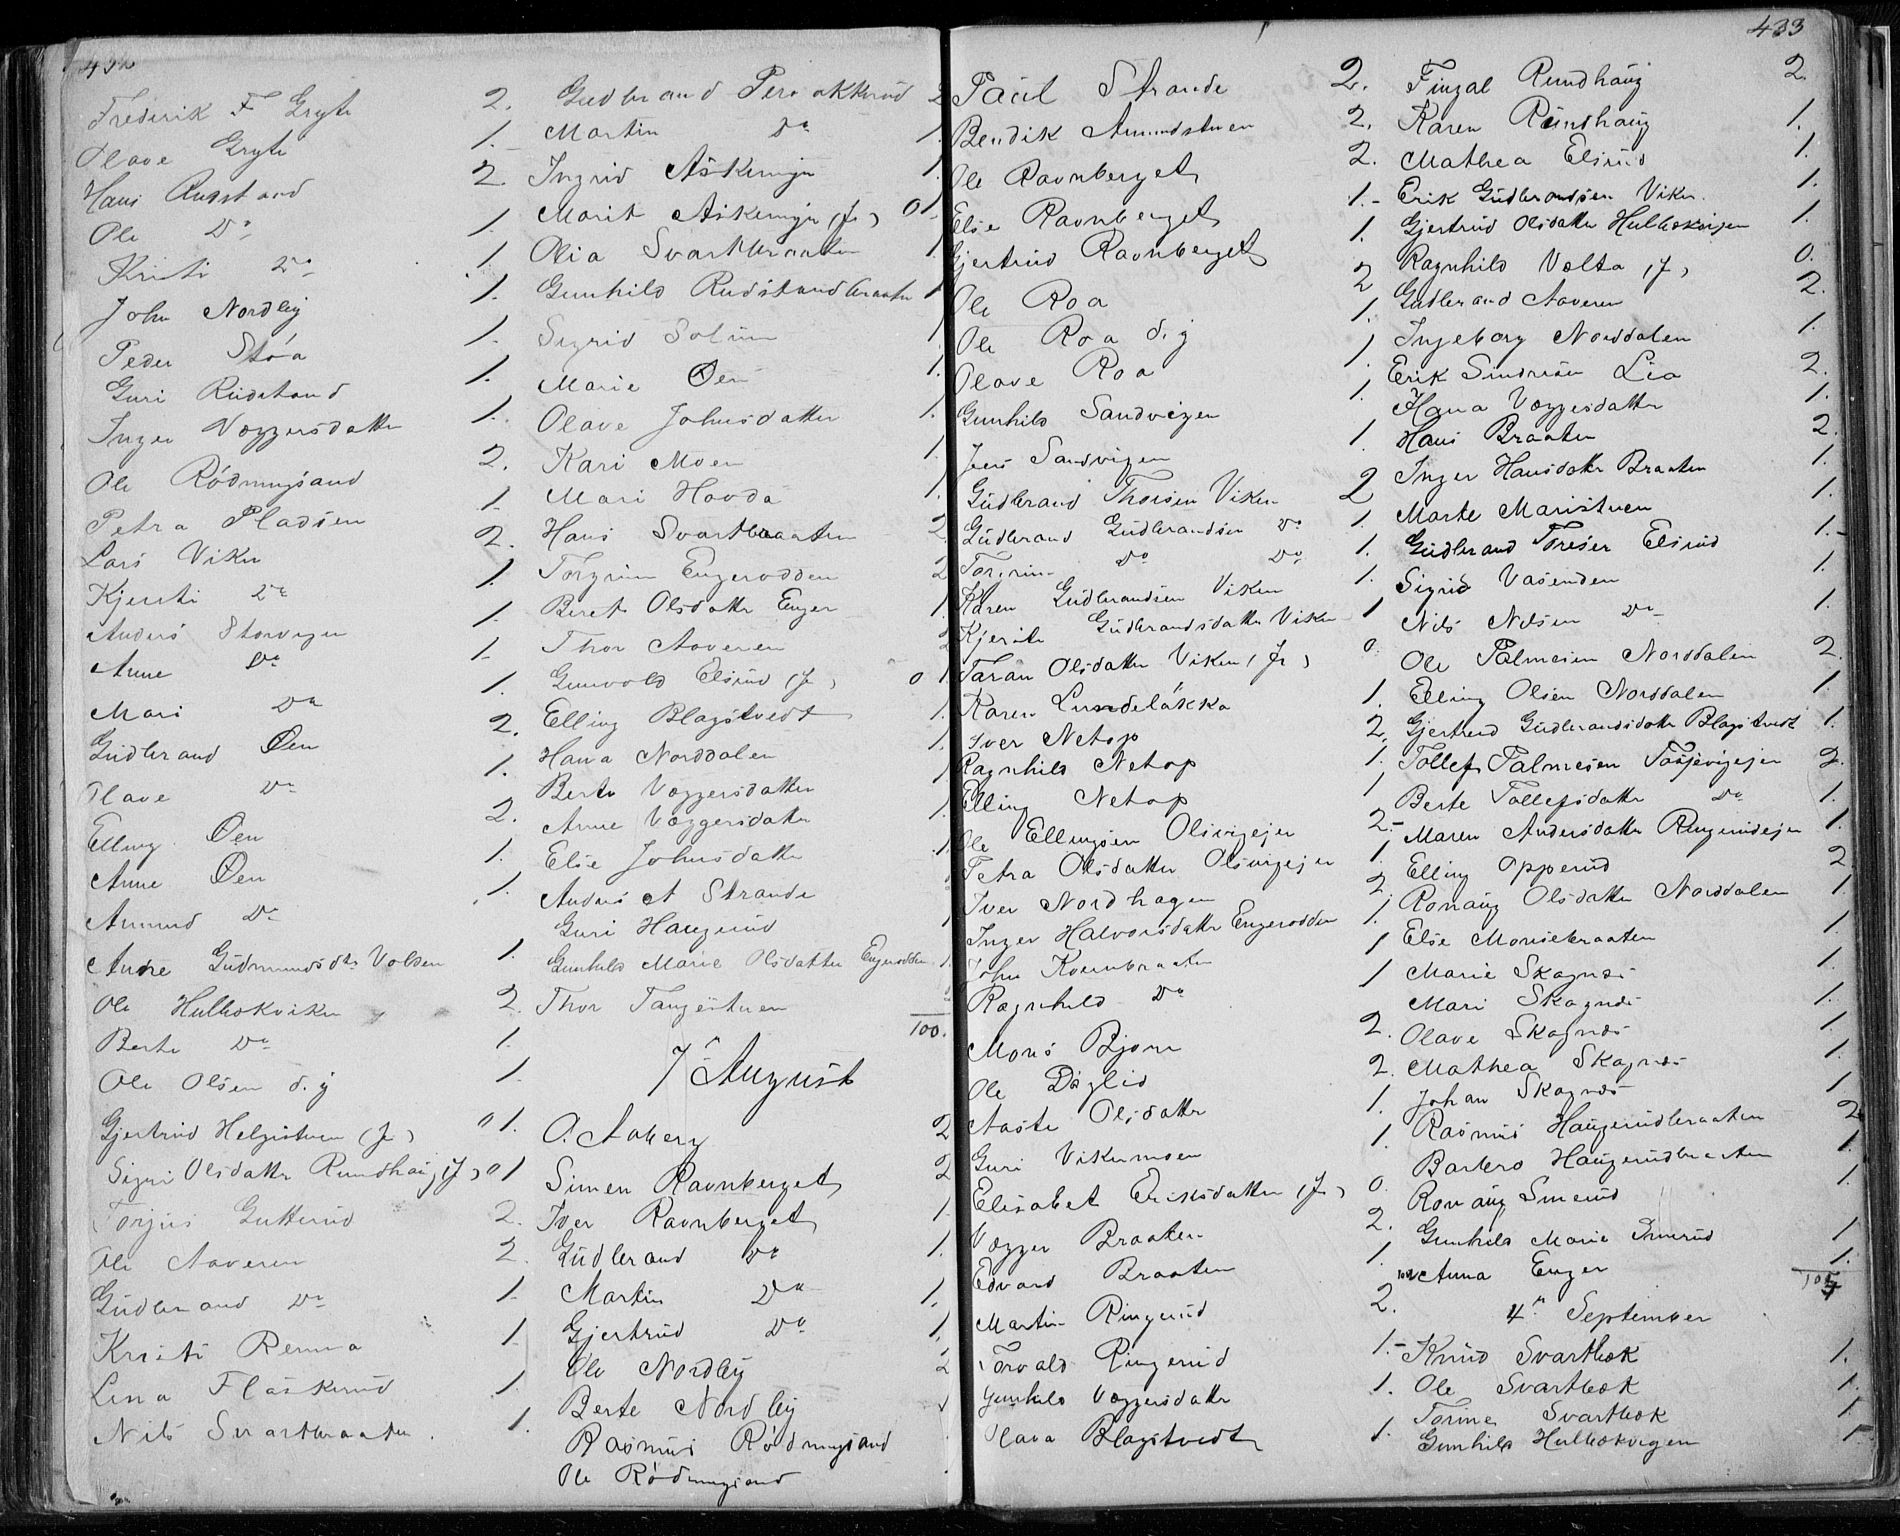 432
Frederik F Gryte 2.
Olave Gryte 1.
Hans Rudstand 2.
Ole Do 1.
Kristi Do 1
John Nordby 1.
Peder Stöa 1.
Guri Rudstand 1.
Inger Væggersdatter 1.
Ole Rödmyrsand 2.
Petra Pladsen 1.
Lars Viken 2.
Kjersti Do 1.
Anders Storvegen 1.
Anne Do 1.
Mari Do 1.
Gudbrand Øen 2.
Olave Do 1.
Elling Øen 2.
Anne Øen 1.
Amund Do 1.
Andre Gudmundsdtr Volden 1.
Ole Hulbækviken 2.
Berte Do 1.
Ole Olsen d. y 1.
Gjertrud Helgestuen (J) 0 1.
Sigri Olsdatter Rundhaug (J) 0 1
Torjus Gutterud 2.
Ole Aaveren 2.
Gudbrand Do 1.
Kristi Renna 1.
Lena Flaskerud 1.
Nils Svartbraaten 1.
Gudbrand Persokkerud 2
Martin Do 1.
Ingrid Askemyr 1.
Marit Askemyr (J) 0 1.
Olia Svartbraaten 1
Gunhild Rudstandbraaten 1
Sigrid Solum 1
Marie Øen 1.
Olave Johnsdatter 1.
Kari Moen 1
Mari Hovda 1.
Hans Svartbraaten 2
Torgrim Engerodden 2
Beret Olsdatter Enger 1.
Thor Aaveren 2
Gunvold Elsrud (J) 0 1
Elling Blagstvedt 1.
Hana Norddalen 1.
Berte Væggersdatter 1
Anne Væggersdatter 1.
Else Johnsdatter 1.
Anders A Strande
Guri Haugerud 1
Gunhild Marie Olsdatter Engerodden 1.
Thor Tangestuen
100.
7de August
O. Aaberg 2
Simen Ravnberget 2
Iver Ravnberget 1
Gudbrand Do 1.
Martin Do 1.
Gjertrud Do 1.
Ole Nordby 2
Berte Nordby 1
Rasmus Rödmyrsand
Ole Rödmyrsand
433
Paul Strande 2.
Bendik Amundstuen 2.
Ole Ravnberget 2.
Else Ravnberget 1.
Gjertrud Ravnberget 1.
Ole Roa 2
Ole Roa d. y 1.
Olave Roa 1
Gunhild Sandvigen 1.
Jens Sandvigen 1.
Gudbrand Thorsen Viken 2
Gudbrand Gudbrandsen Do 1.
Torgrim Do Do 1.
Karen Gudbrandsen Viken 1.
Kjersti Gudbrandsdatter Viken 1
Taran Olsdatter Viken (J) 0.
Karen Lundeløkka 1.
Iver Netop 2.
Ragnhild Netop 1.
Elling Netop 1
Ole Ellingsen Olsvigejer 2.
Petra Olsdatter Olsvigejer 1
Iver Nordhagen 2.
Inger Halvorsdatter Engerodden 1.
John Kvernbraaten 1
Ragnhild Do 1
Mons Bjørn 2.
Ole Døglid 2.
Aaste Olsdatter 1.
Guri Vikermoen 1.
Elisabet Eriksdatter (J) 0.
Vegger Braaten 2.
Edvard Braaten 1.
Martin Ringerud 2.
Torvald Ringerud 1.
Gunhild Væggersdatter 1.
Olava Blagstvedt 1.
Fingal Rundhaug 2.
Karen Rundhaug 1.
Mathea Elsrud 1.
Erik Gudbrandsen Viken 1.
Gjertrud Olsdatter Hulbækvigen 1.
Ragnhild Volta (J) 0.
Gudbrand Aaveren 2.
Ingeborg Norddalen 1.
Erik Sindresen Lia 2.
Hana Væggersdatter 1.
Hans Braaten 2.
Inger Hansdatter Braaten 1.
Marte Maristuen 1.
Gudbrand Toresen Elsrud 1.
Sigrid Vasenden 1.
Nils Nilsen Do 1.
Ole Palmesen Norddalen 2.
Elling Olsen Norddalen 1
Gjertrud Gudbrandsdatter Blagstvedt 1.
Tollef Palmesen Tosjevigejer 2.
Berte Tollefsdatter Do 1.
Maren Andersdatter Ringerudejer 1.
Elling Opperud 2.
Ronaug Olsdatter Norddalen 1.
Else Monsebraaten 1
Marie Skagnæs 1.
Mari Skagnæs 1.
Olave Skagnæs 1
Mathea Skagnæs 1.
Johan Skagnæs 1
Rasmus Haugerudbraaten 2
Barbro Haugerudbraaten 1.
Ronaug Smerud 1.
Gunhild Marie Smerud 1
Anna Enger 1.
4de September
Knud Svartbæk 1.
Ole Svartbæk 1.
Torine Svartbæk 1
Gunhild Hulbækvigen 1